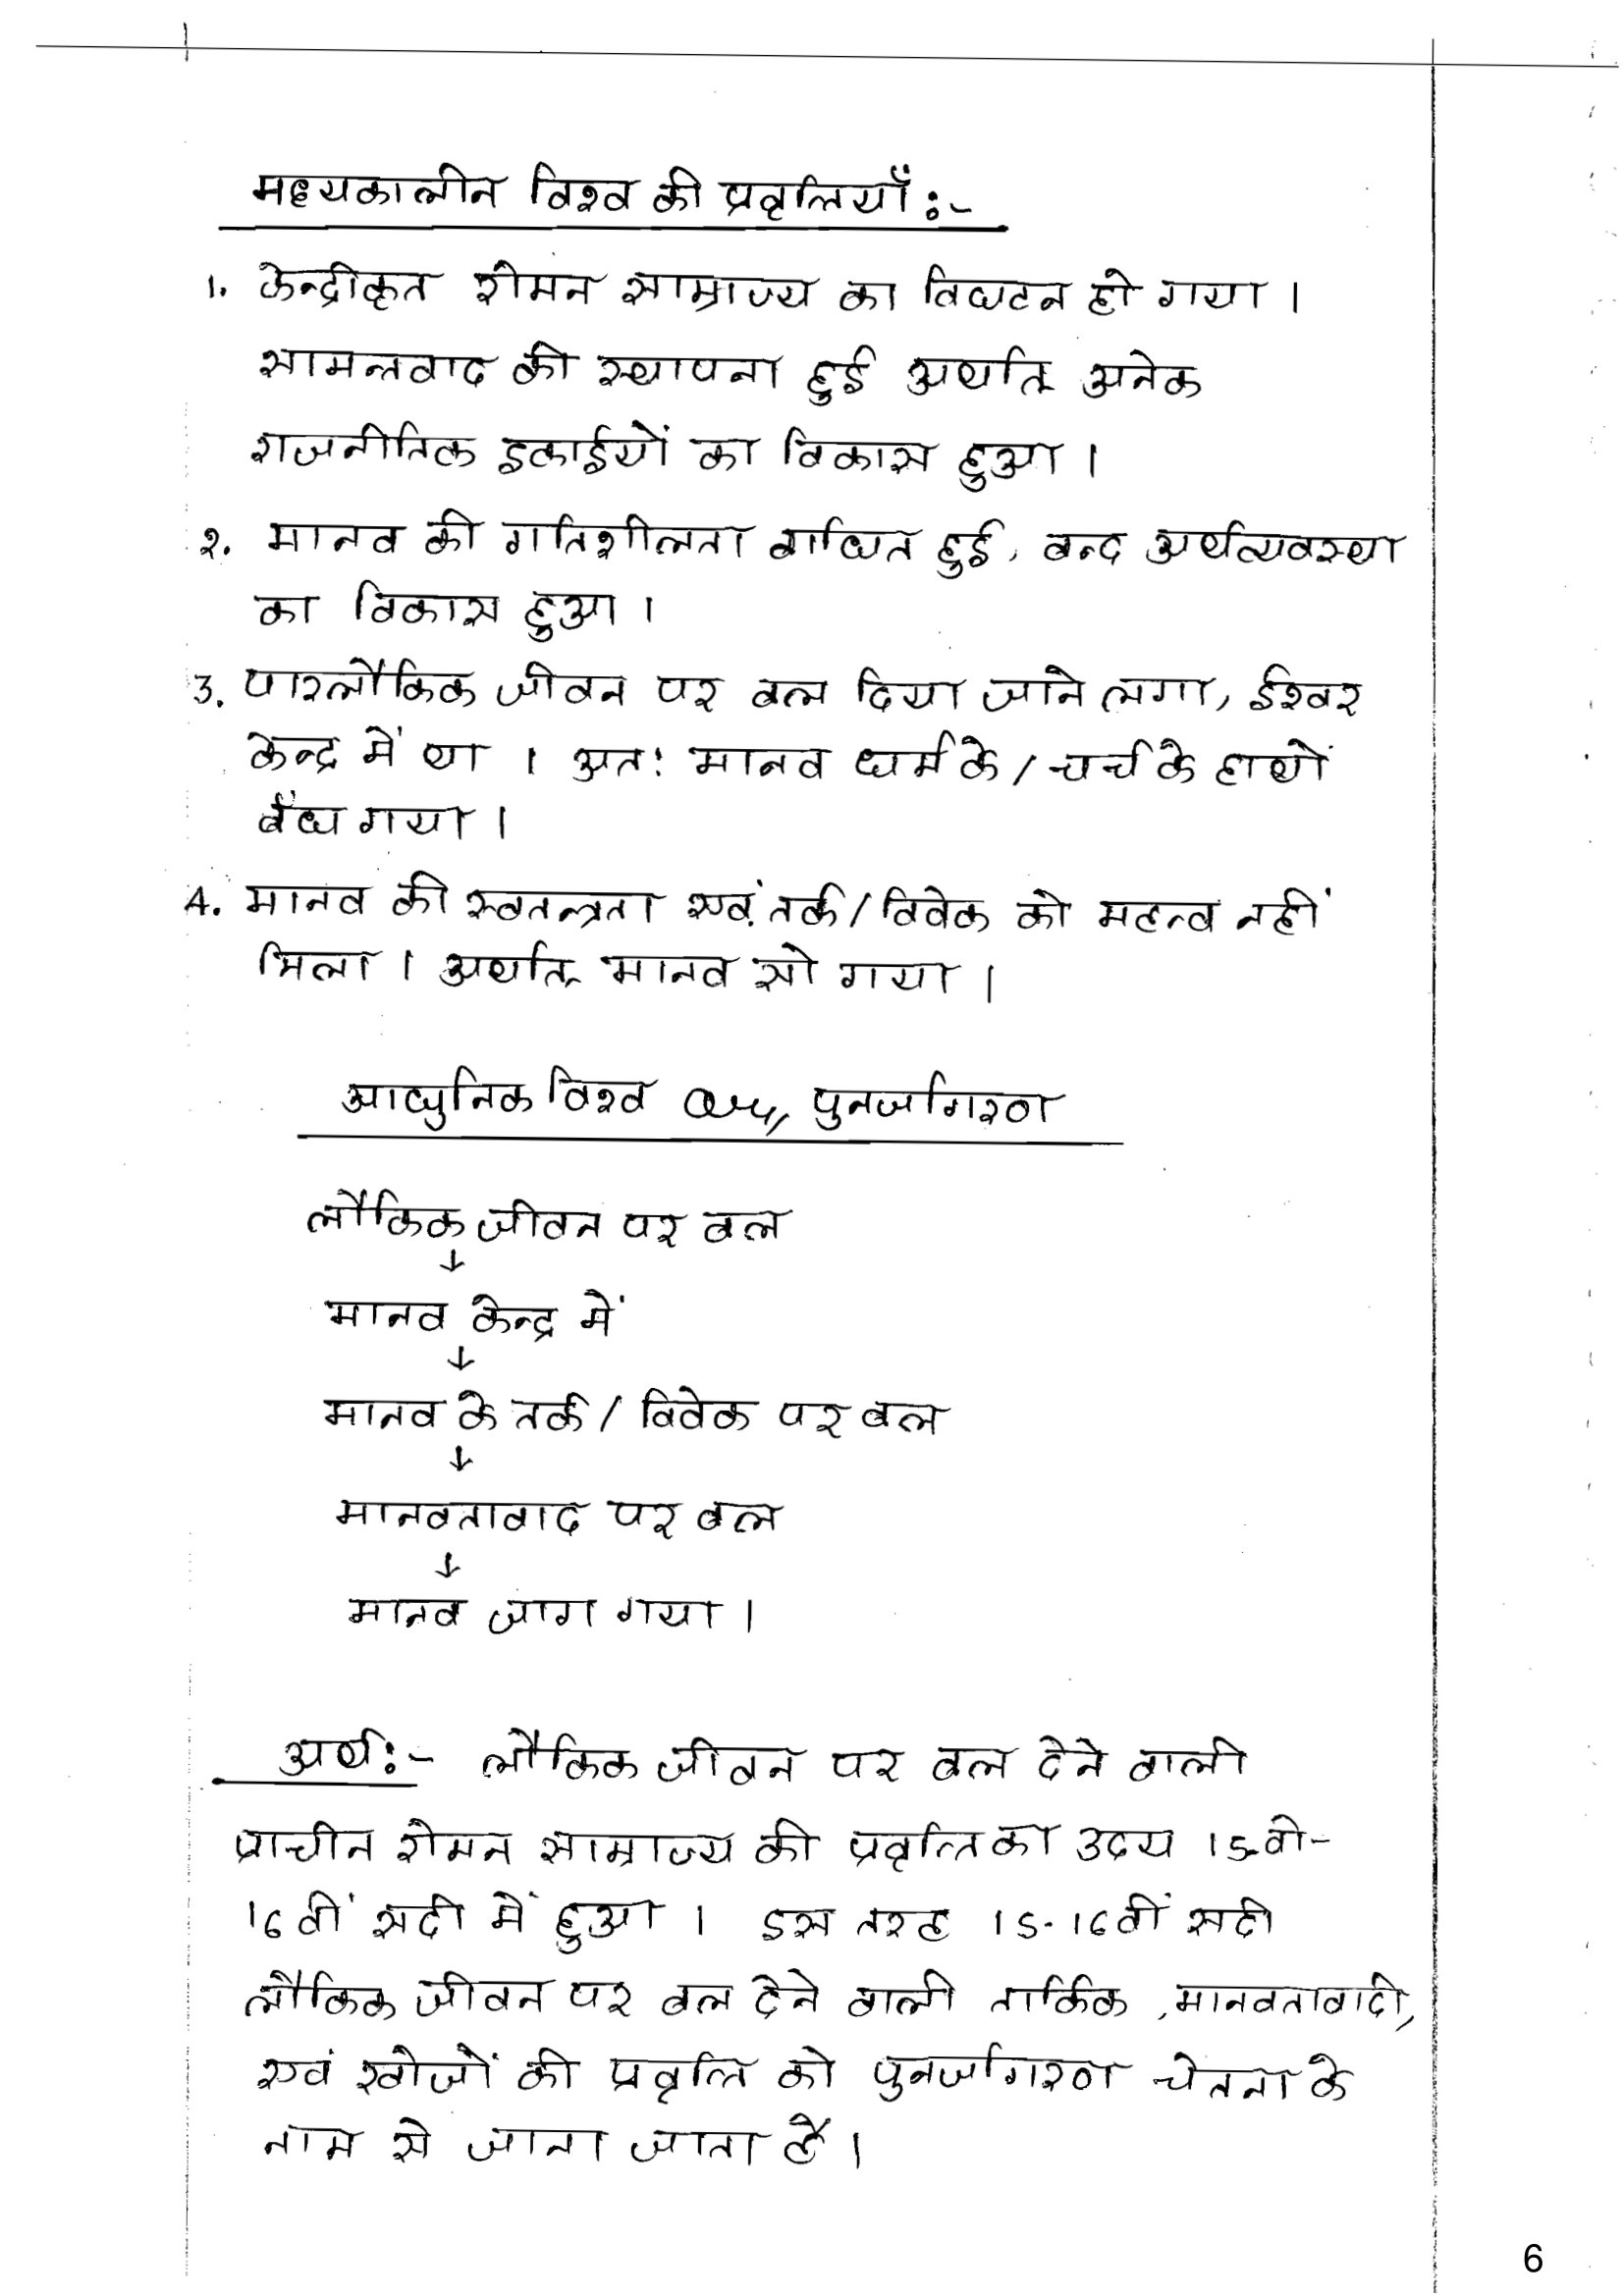 मध्यकालीन विश्व की प्रवृत्तियाँ :-
1. केन्द्रीकृत रोमन साम्राज्य का विघटन हो गया ।
सामन्तवाद की स्थापना हुई अर्थात् अनेक
राजनीतिक इकाईयों का विकास हुआ ।
2. मानव की गतिशीलता बाधित हुई, बन्द अर्थव्यवस्था
का विकास हुआ ।
3. पारलौकिक जीवन पर बल दिया जाने लगा, ईश्वर
केन्द्र में था । अतः मानव धर्म के / चर्च के हाथों
बँध गया ।
4. मानव की स्वतन्त्रता एवं तर्क / विवेक को महत्व नहीं
मिला । अर्थात् मानव सो गया ।
आधुनिक विश्व पुनर्जागरण
लौकिक जीवन पर बल
↓
मानव केन्द्र में
↓
मानव के तर्क / विवेक पर बल
↓
मानवतावाद पर बल
↓
मानव जाग गया ।
अर्थ :- लौकिक जीवन पर बल देने वाली
प्राचीन रोमन साम्राज्य की प्रवृत्ति का उदय 15वी-
16वीं सदी में हुआ । इस तरह 15-16वीं सदी
लौकिक जीवन पर बल देने वाली तार्किक, मानवतावादी,
एवं खोजों की प्रवृत्ति को पुनर्जागरण चेतना के
नाम से जाना जाता है ।
6